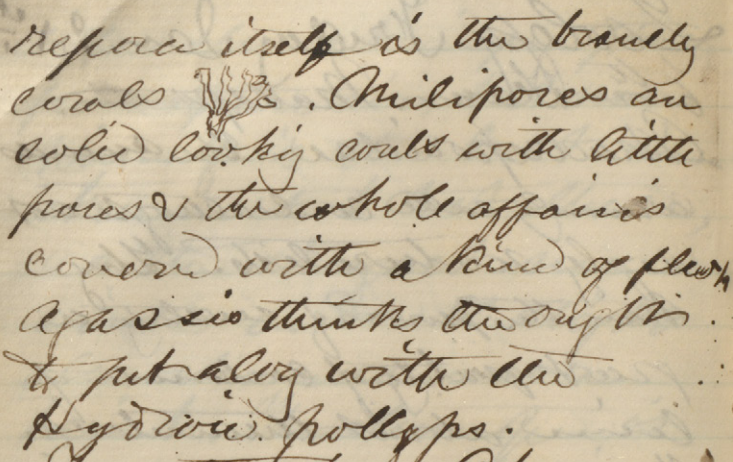 repora itself is the branchy
corals . Milipores are
solid looking corals with little
pores & the whole affair is
covered with a kind of flesh
Agassis thinks the ought
to put along with the
Hydroid pollyps.